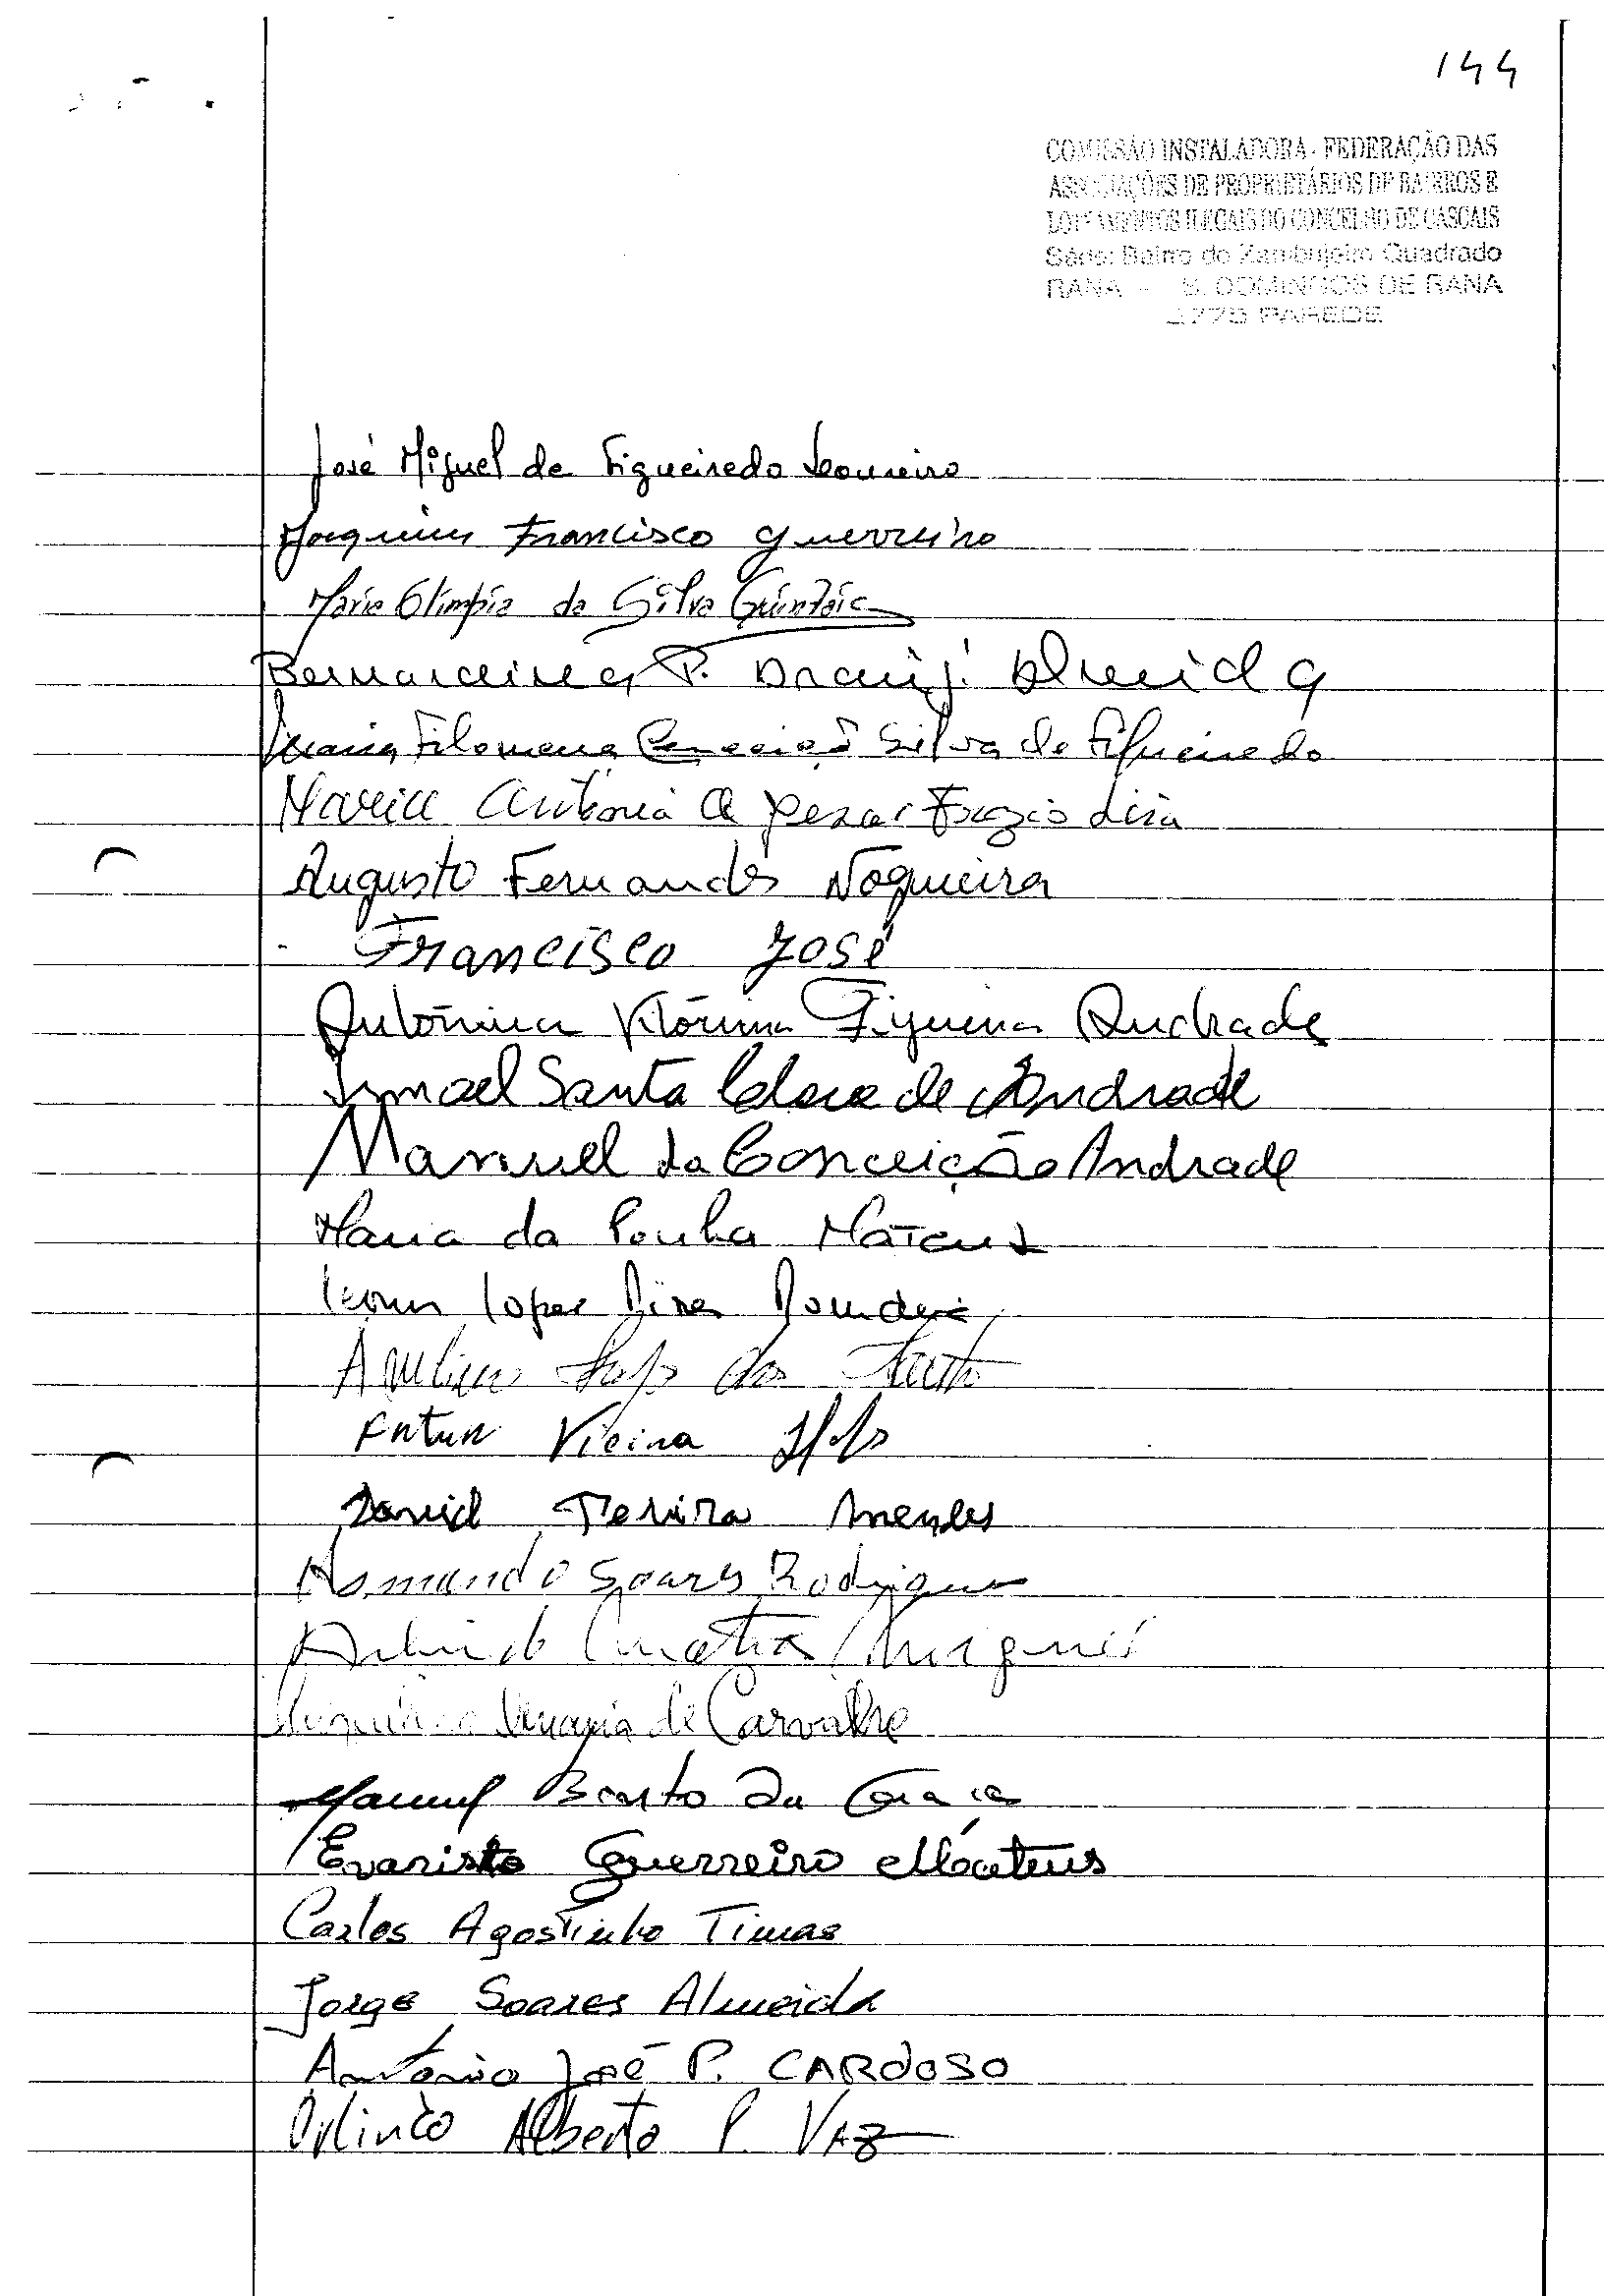 144
COMISSÃO INSTALADORA - FEDERAÇÃO DAS
ASSOCIAÇÕES DE PROPRIETÁRIOS DE BAIRROS E
LOTEAMENTOS ILEGAIS DO CONCELHO DE CASCAIS
Séde: Bairro do Zambujeiro Quadrado
RANA - S. DOMINGOS DE RANA
2775 PAREDE
José Miguel de Figueiredo Loureiro
Joaquim Francisco Guerreiro
Maria Olímpia da Silva
P. Almeida
Maria Filomena Conceição Silva de Figueiredo
Maria Antónia
Augusto Fernandes Nogueira
Francisco José
Vitórina Figueira Andrade
Ismael Santa Clara de Andrade
Manuel da Conceição Andrade
Maria da Penha Mateus
Lopes Pires
dos
Artur Vieira
David Pereira Mendes
Armando Soares Rodrigues
Maria de Carvalho
Manuel Bento da Graça
Evaristo Guerreiro Mateus
Carlos Agostinho Timas
Jorge Soares Almeida
António José P. CARDOSO
Orlindo Alberto P. VAZ